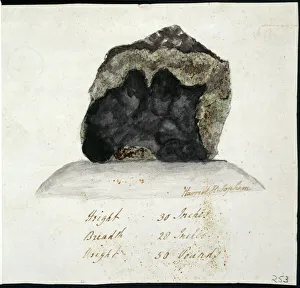 Harriet Topham
Hight . 30 Inches
Breadth . 20 Inches
Weight . 50 Pounds
253